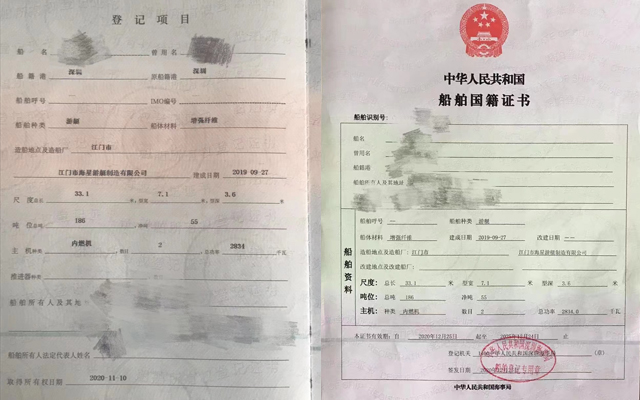 登记项目
船名 曾用名
船籍港 深圳 原船籍港 深圳
船舶呼号 — IMO编号
船舶种类 游艇 船体材料 增强纤维
造船地点及造船厂 江门市
江门市海星游艇制造有限公司 建成日期 2019-09-27
尺度 总长 33.1 米, 型宽 7.1 米, 型深 3.6 米
吨位 总吨 186 净吨 55
主机 种类 内燃机 数目 2 总功率 2834 千瓦
推进器 种类
船舶所有人及其地
船舶所有人法定代表人姓名
取得所有权日期 2020-11-10
中华人民共和国
船舶国籍证书
船舶识别号:
船名
曾用名
船籍港
船舶所有人及其地址
船舶资料
船舶呼号 — 船舶种类 游艇
船体材料 增强纤维 建成日期 2019-09-27 改建日期 --
造船地点及造船厂: 江门市 江门市海星游艇制造有限公司
改建地点及改建船厂:
尺度: 总长 33.1 米 型宽 7.1 米 型深 3.6 米
吨位: 总吨 186 净吨 55
主机: 种类 内燃机 数目 2 总功率 2834.0 千瓦
本证书有效期: 自 2020年12月25日 起至 止
登记机关 (章)
签发日期
船舶登记专用章
中华人民共和国海事局